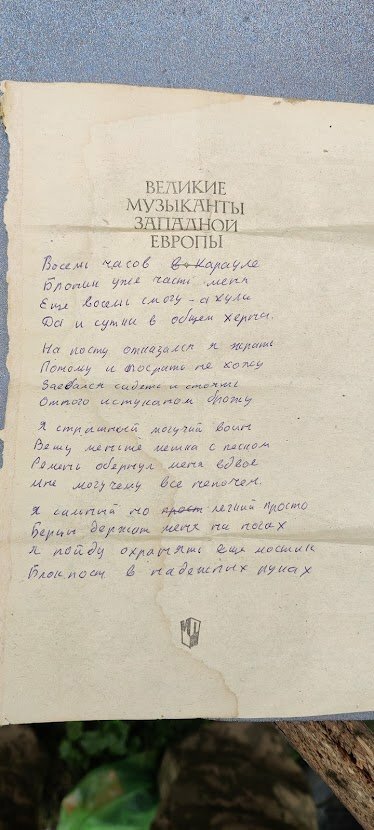 ВЕЛИКИЕ
МУЗЫКАНТЫ
ЗАПАДНОЙ
ЕВРОПЫ
Восемь часов в Карауле
Броник уже часть меня
Еще восемь смогу - а хули
Да и сутки в общем херня.
На посту отказался я жрать
Потому и посрать не хожу
Заебался сидеть и стоять
Оттого истуканом брожу
Я страшный могучий воин
Вешу меньше мешка с песком
Ремень обернул меня вдвое
Мне могучему все нипочем.
Я сильный но прост легкий просто
Берцы держат меня на ногах
Я пойду охранять еще мостик
Блокпост в надежных руках